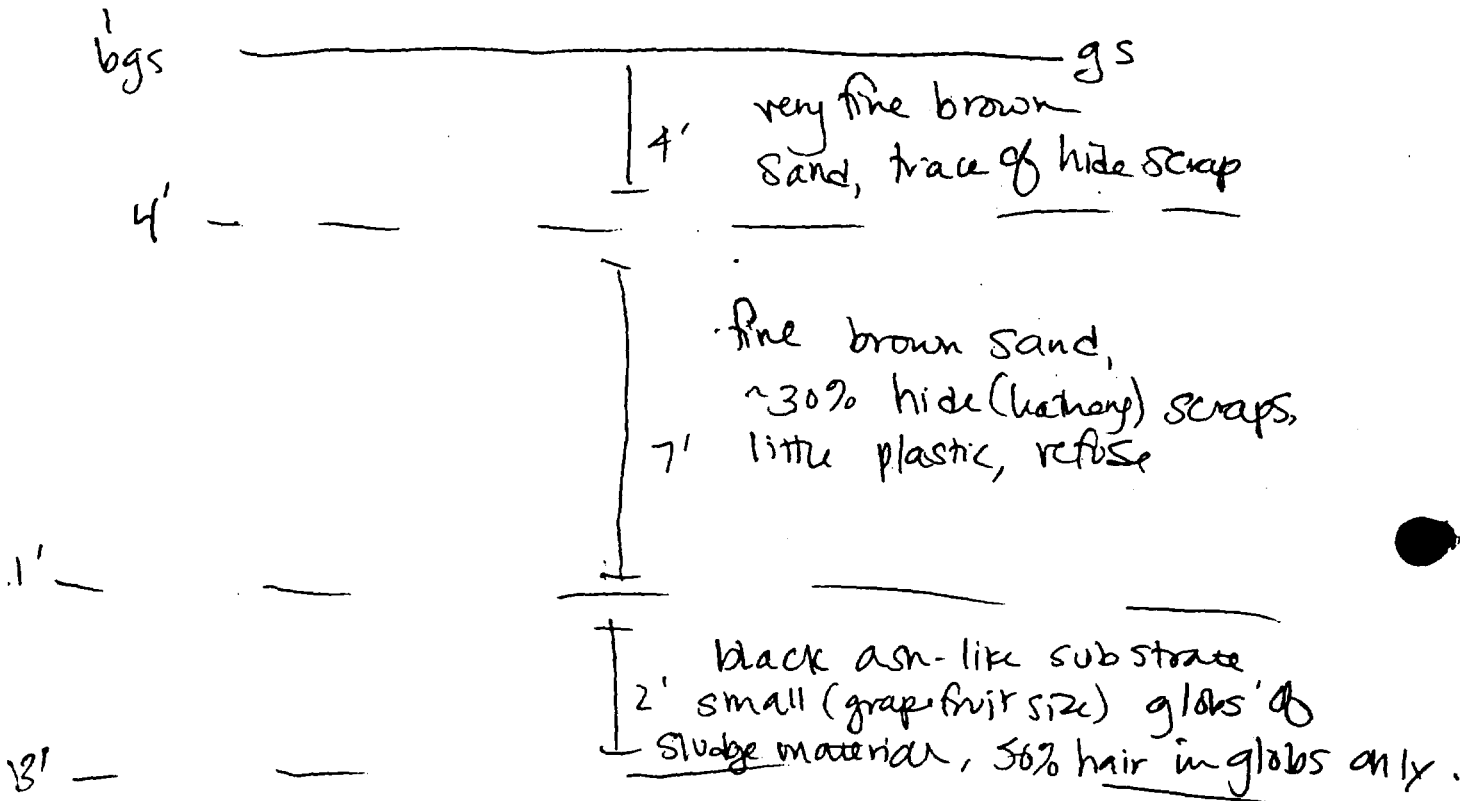 bgs gs
4' very fine brown
sand, trace of hide scrap
4'
fine brown sand,
~30% hide scraps,
7' little plastic, refuse
.1'
black ash-like substrate
2' small (grapefruit size) globs of
sludge material, 50% hair in globs only.
13'